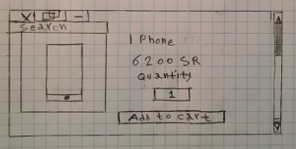 X
search
1 Phone
6200 SR
Quantity
1
Add to cart